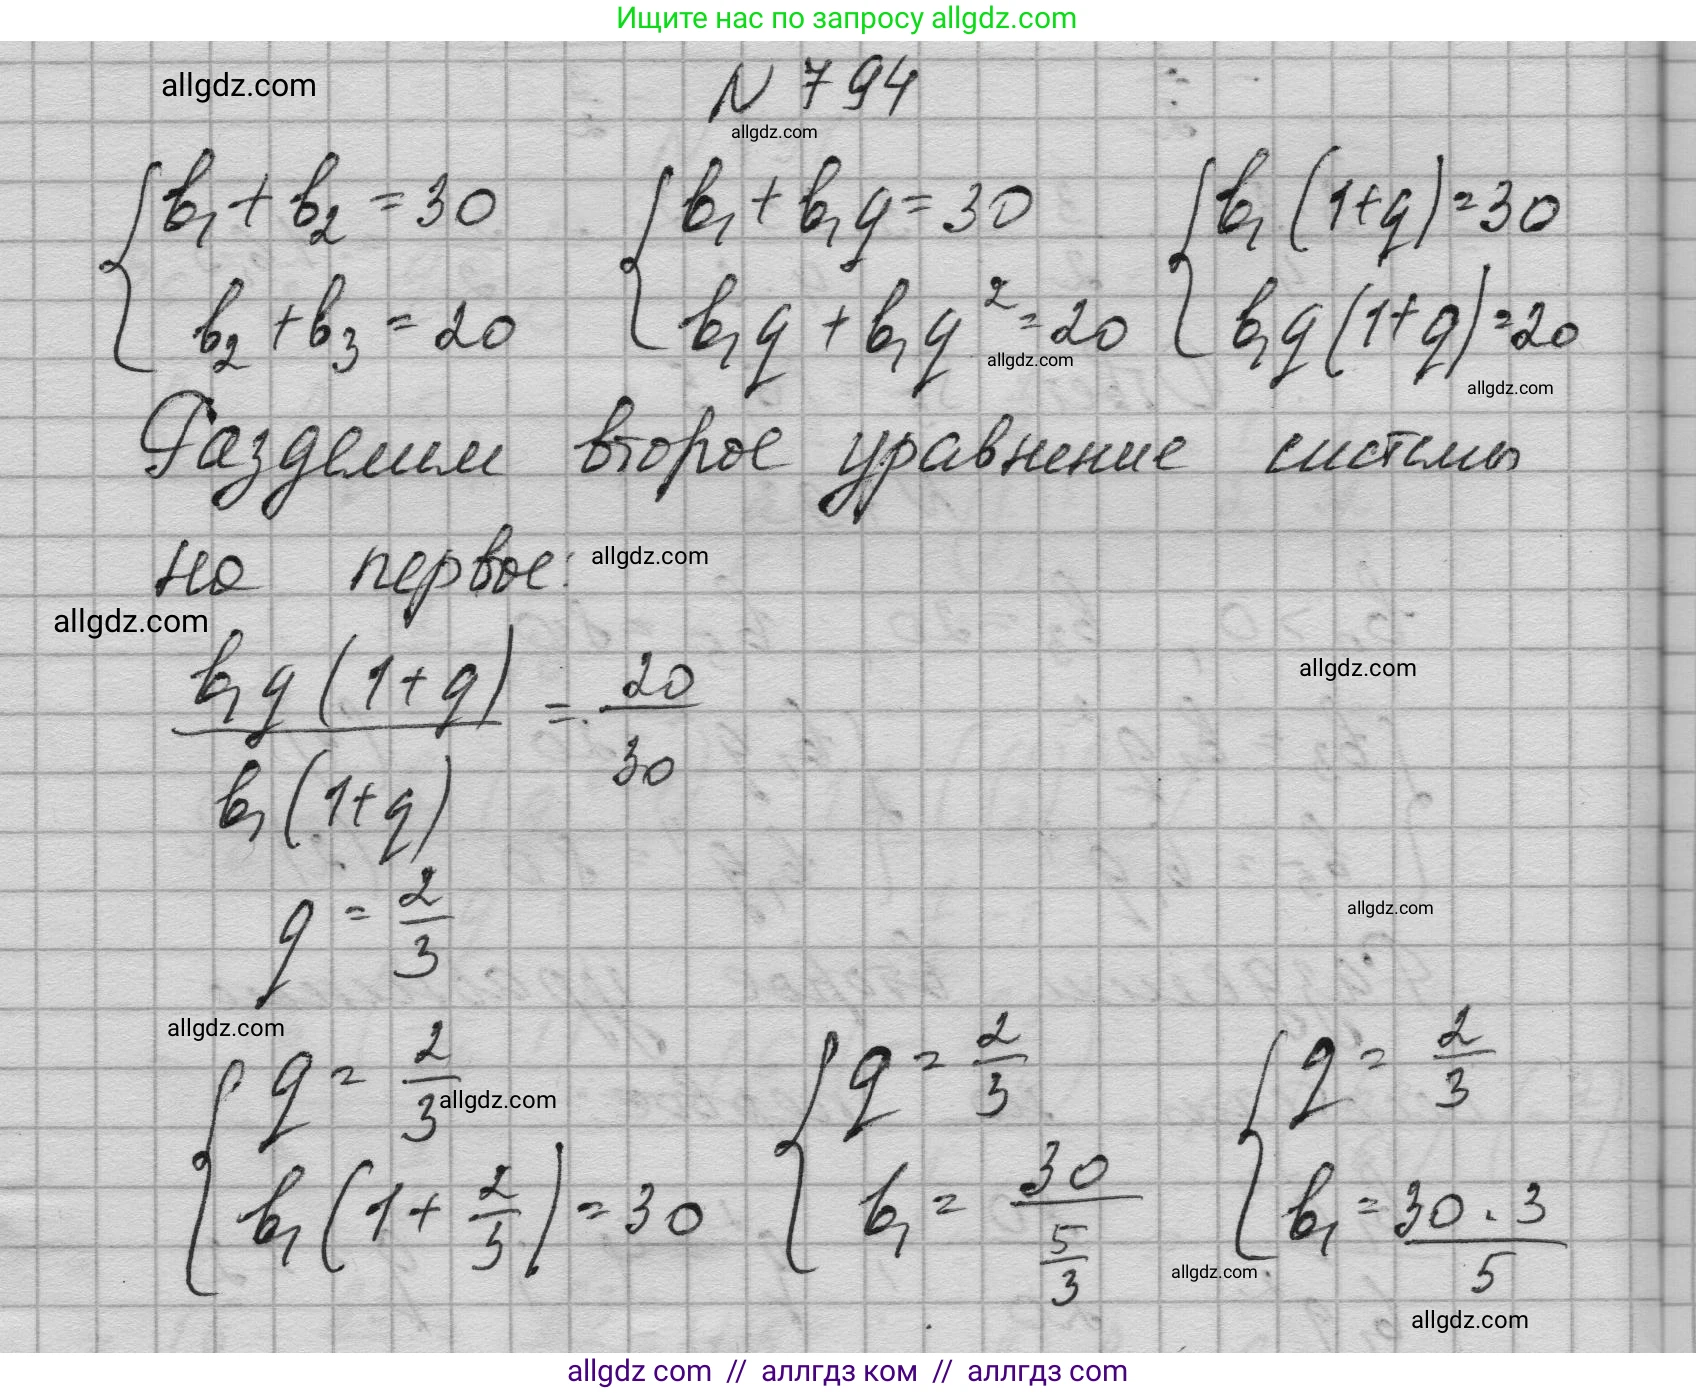 Ищите нас по запросу allgdz.com
allgdz.com
N 794
allgdz.com
{ b₁ + b₂ = 30   { b₁ + b₁q = 30   { b₁(1+q) = 30
b₂ + b₃ = 20   b₁q + b₁q² = 20   b₁q(1+q) = 20
allgdz.com
allgdz.com
Разделим второе уравнение системы
на первое:
allgdz.com
allgdz.com
allgdz.com
b₁q(1+q) / b₁(1+q) = 20/30
q = 2/3
allgdz.com
allgdz.com
{ q = 2/3   { q = 2/3   { q = 2/3
allgdz.com
b₁(1 + 2/3) = 30   b₁ = 30 / (5/3)   b₁ = 30 · 3 / 5
allgdz.com
allgdz.com
allgdz com // аллгдз ком // аллгдз com